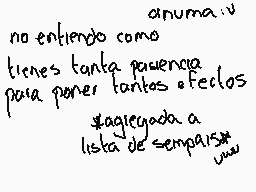 anuma:v
no entiendo como
tienes tanta pasiencia
para poner tantos efectos
*agregada a
lista de sempais*
uwu